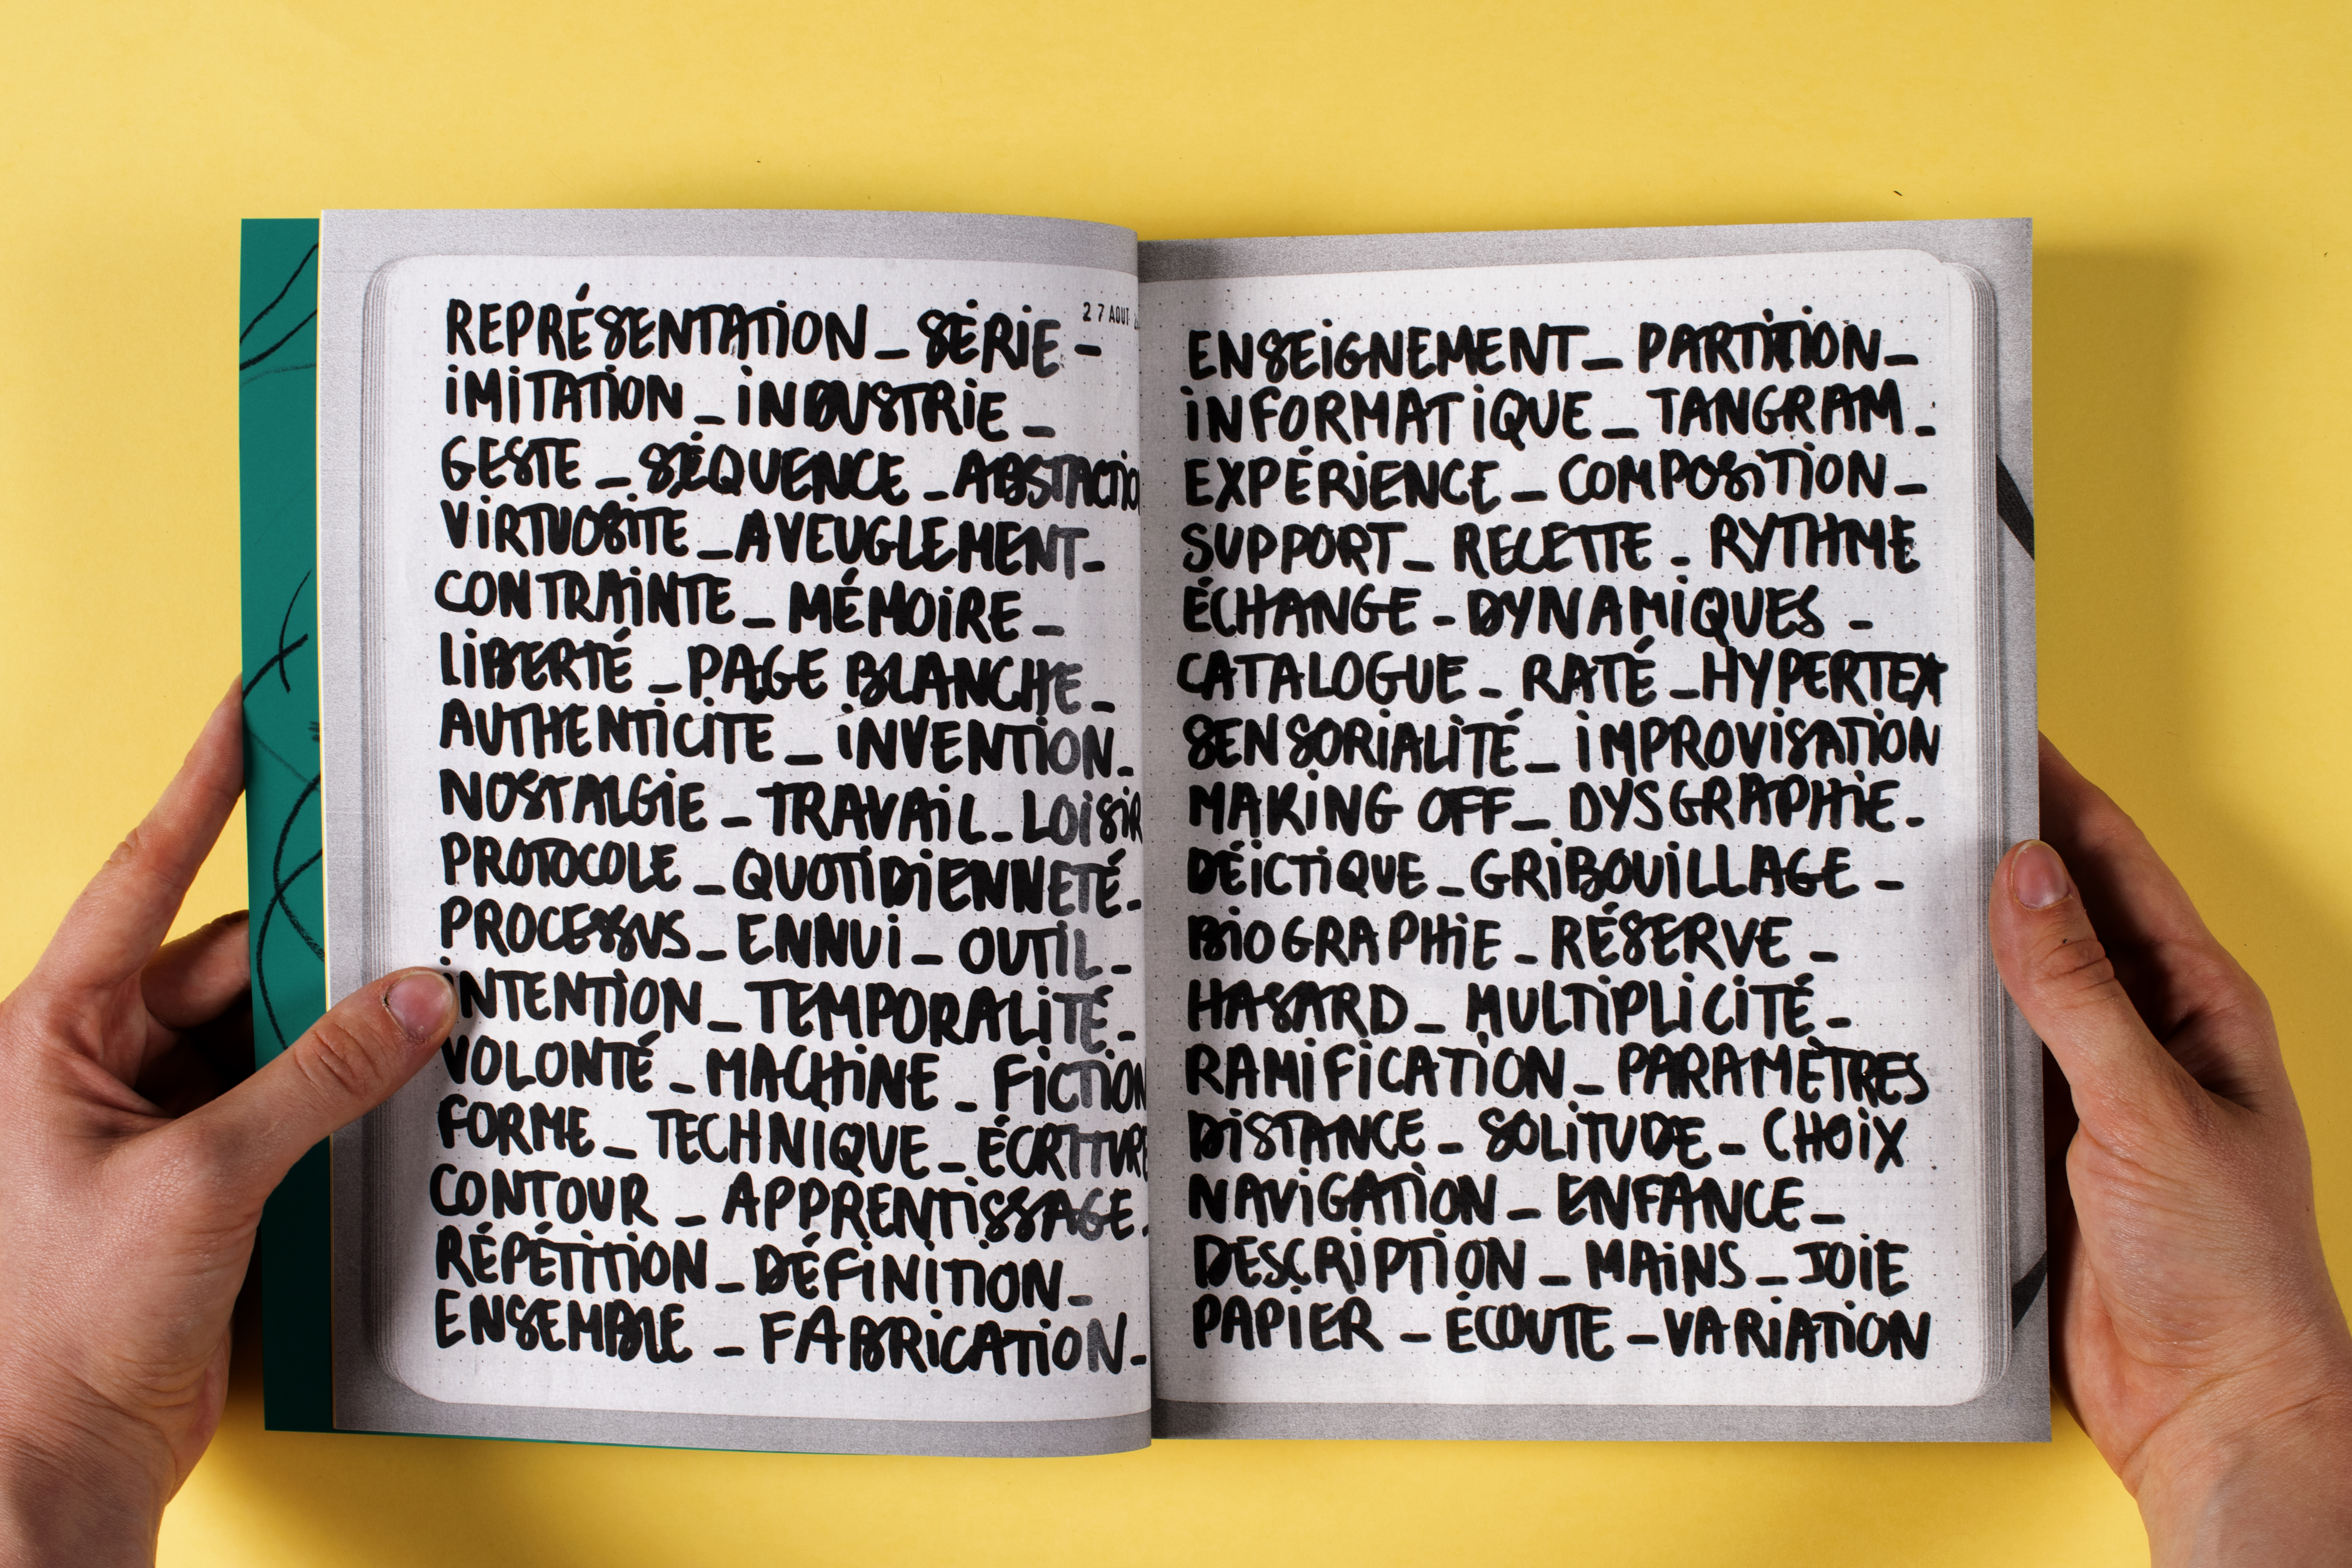 27 AOUT
REPRÉSENTATION _ SÉRIE _
IMITATION _ INDUSTRIE _
GESTE _ SÉQUENCE _ ABSTACTIO
VIRTUOSITE _ AVEUGLEMENT _
CONTRAINTE _ MÉMOIRE _
LIBERTÉ _ PAGE BLANCHE _
AUTHENTICITE _ INVENTION _
NOSTALGIE _ TRAVAIL _ LOISIR
PROTOCOLE _ QUOTIDIENNETÉ _
PROCESSUS _ ENNUI _ OUTIL _
INTENTION _ TEMPORALITÉ _
VOLONTÉ _ MACHINE _ FICTION
FORME _ TECHNIQUE _ ÉCRITURE
CONTOUR _ APPRENTISSAGE _
RÉPÉTITION _ DÉFINITION _
ENSEMBLE _ FABRICATION _
ENSEIGNEMENT _ PARTITION _
INFORMATIQUE _ TANGRAM _
EXPÉRIENCE _ COMPOSITION _
SUPPORT _ RECETTE _ RYTHME
ÉCHANGE _ DYNAMIQUES _
CATALOGUE _ RATÉ _ HYPERTEX
SENSORIALITÉ _ IMPROVISATION
MAKING OFF _ DYSGRAPHIE _
DÉICTIQUE _ GRIBOUILLAGE _
BIOGRAPHIE _ RÉSERVE _
HASARD _ MULTIPLICITÉ _
RAMIFICATION _ PARAMÈTRES
DISTANCE _ SOLITUDE _ CHOIX
NAVIGATION _ ENFANCE _
DESCRIPTION _ MAINS _ JOIE
PAPIER _ ÉCOUTE _ VARIATION